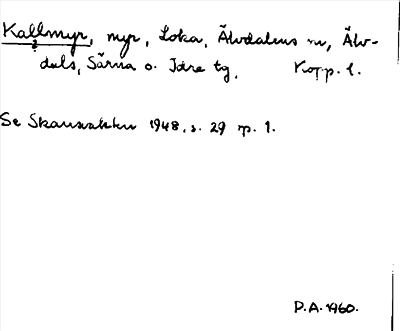 Kallmyr, myr, Loka, Älvdalens sn, Älv-
dals, Särna o. Idre tg. Kopp. l.
Se Skansvakku 1948, s. 29 sp. 1.
P.A. 1960.